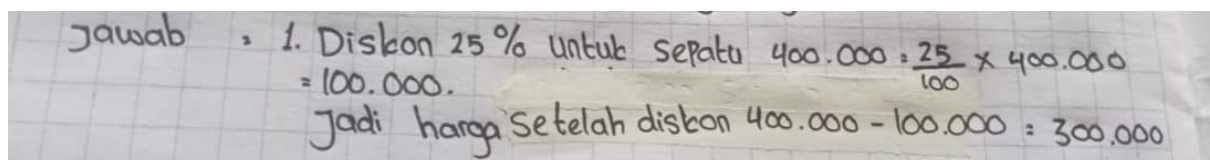 Jawab : 1. Diskon 25% untuk sepatu 400.000 = 25/100 x 400.000
= 100.000.
Jadi harga setelah diskon 400.000 - 100.000 = 300.000